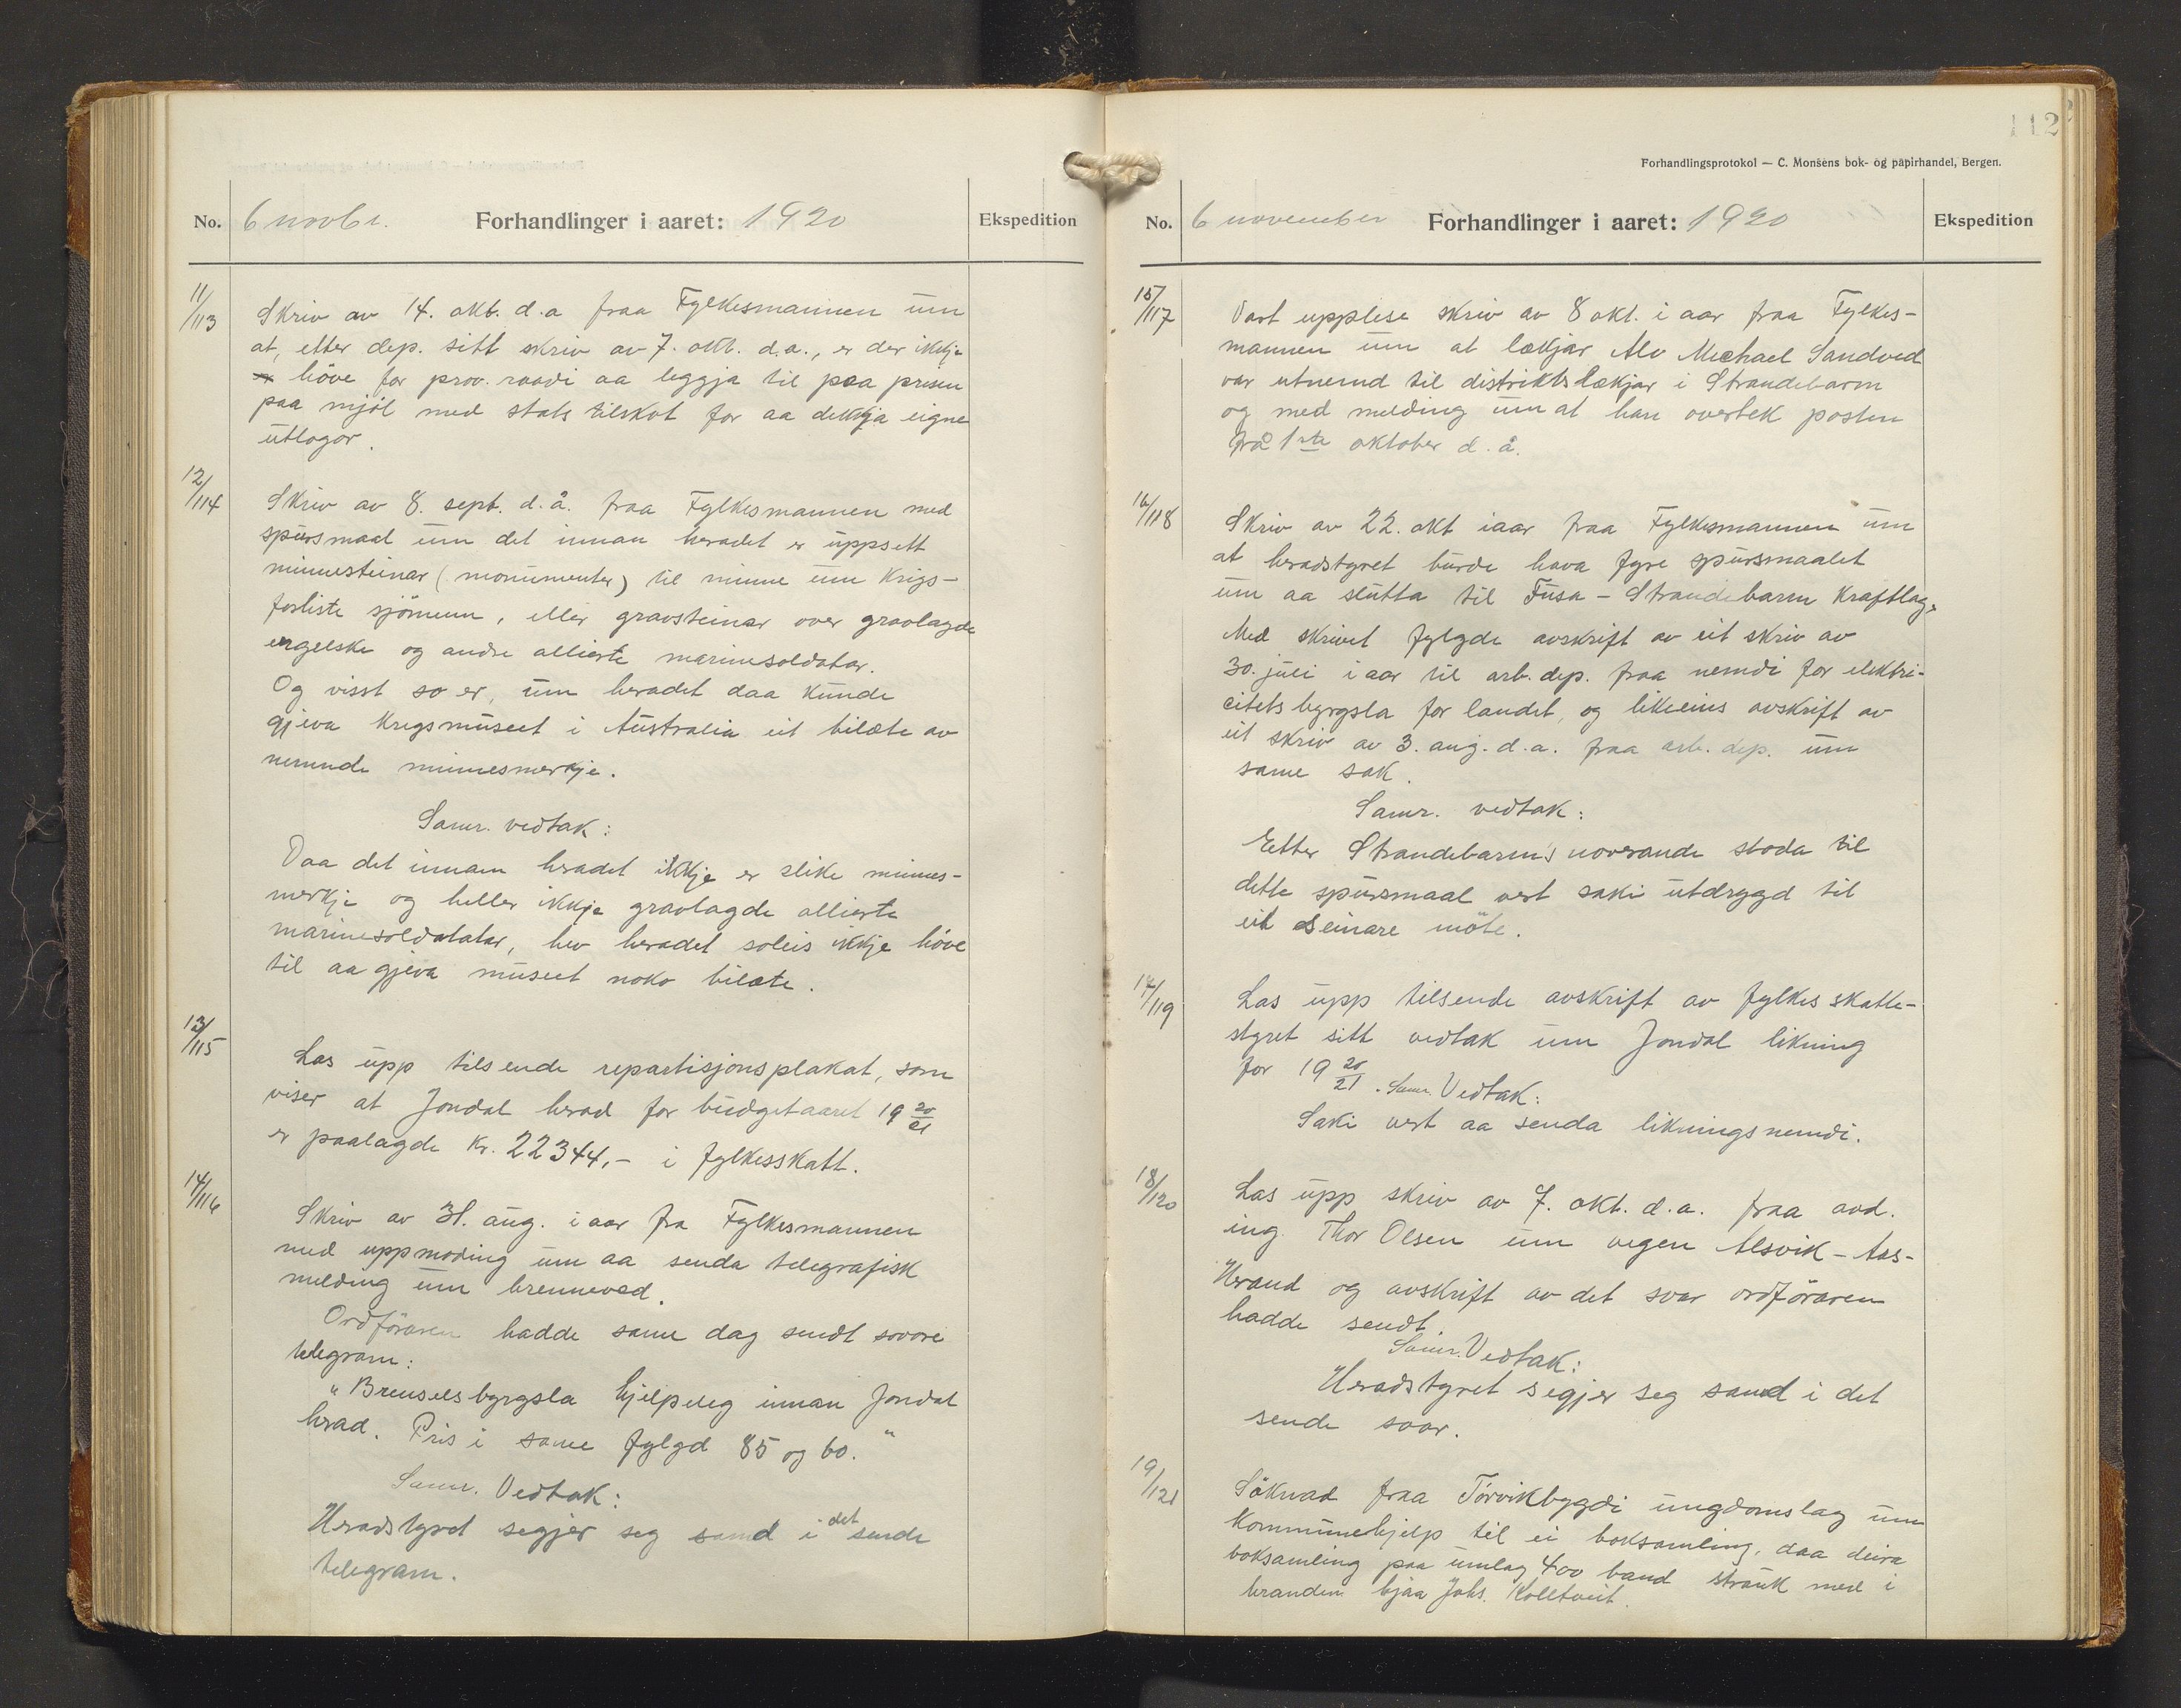 No. 6 novbr. Forhandlinger i aaret: 1920 Ekspedition
11/113
Skriv av 14. okt. d.a fraa Fylkesmannen um
at, etter dep. sitt skriv av 7. okt. d.a., er der ikkje
höve for prov. raadi aa leggja til paa prisen
paa mjöl med stats tilskot for aa dekkja eigne
utlogor.
12/114
Skriv av 8. sept. d.å. fraa Fylkesmannen med
spursmaal um det innan heradet er uppsett
minnesteinar (monumenter) til minne um Krigs-
forliste sjömenn, eller gravsteinar over gravlagde
engelske og andre allierte marinesoldatar.
Og visst so er, um heradet daa kunde
gjeva Krigsmuseet i Australia eit bilæte av
nemnde minnesmerkje.
Samr. vedtak:
Daa det innan heradet ikkje er slike minnes-
merkje og heller ikkje gravlagde allierte
marinesoldatatar, hev heradet soleis ikkje höve
til aa gjeva museet noko bilæte.
13/115
Las upp tilsende repartisjonsplakat, som
viser at Jondal herad for budgetaaret 19 20/21
er paalagde Kr. 22344,- i fylkesskatt.
14/116
Skriv av 31. aug. i aar fra Fylkesmannen
med uppmoding um aa senda telegrafisk
melding um brenneved.
Ordföraren hadde same dag sendt sovore
telegram:
"Brenselsbyrgsla hjelpeleg innan Jondal
herad. Pris i same fylgd 85 og 60."
Samr. Vedtak:
Heradstyret segjer seg samd i det sende
telegram.
112
Forhandlingsprotokol — C. Monsens bok- og papirhandel, Bergen.
No. 6 november Forhandlinger i aaret: 1920 Ekspedition
15/117
Vart upplese skriv av 8 okt. i aar fraa Fylkes-
mannen um at lækjar Alv Michael Sandved
var utnemnd til distriktslækjar i Strandebarm
og med melding um at han overtek posten
frå 1ste oktober d.å.
16/118
Skriv av 22. okt iaar fraa Fylkesmannen um
at heradstyret burde hava fyre spursmaalet
um aa slutta til Fusa - Strandebarm Kraftlag.
Med skrivet fylgde avskrift av eit skriv av
30. juli i aar til arb. dep. fraa nemdi for elektri-
citets byrgsla for landet, og likeeins avskrift av
eit skriv av 3. aug. d.a. fraa arb. dep. um
same sak.
Samr. vedtak:
Etter Strandebarms noverande stoda til
dette spursmaal vert saki utdrygd til
eit seinare möte.
17/119
Las upp tilsende avskrift av fylkesskatte-
styret sitt vedtak um Jondal likning
for 19 20/21. Samr. Vedtak:
Saki vert aa senda likningsnemdi.
18/120
Las upp skriv av 7. okt. d.a. fraa avd.
ing. Thor Olsen um vegen Alsvik - Aas-
Herand og avskrift av det svar ordföraren
hadde sendt.
Samr. Vedtak:
Heradstyret segjer seg samd i det
sende svar.
19/121
Söknad fraa Torvikbygdi ungdomslag um
Kommunehjelp til ei boksamling, daa deira
boksamling paa umlag 400 band strauk med i
branden hjaa Johs. Kolltveit.